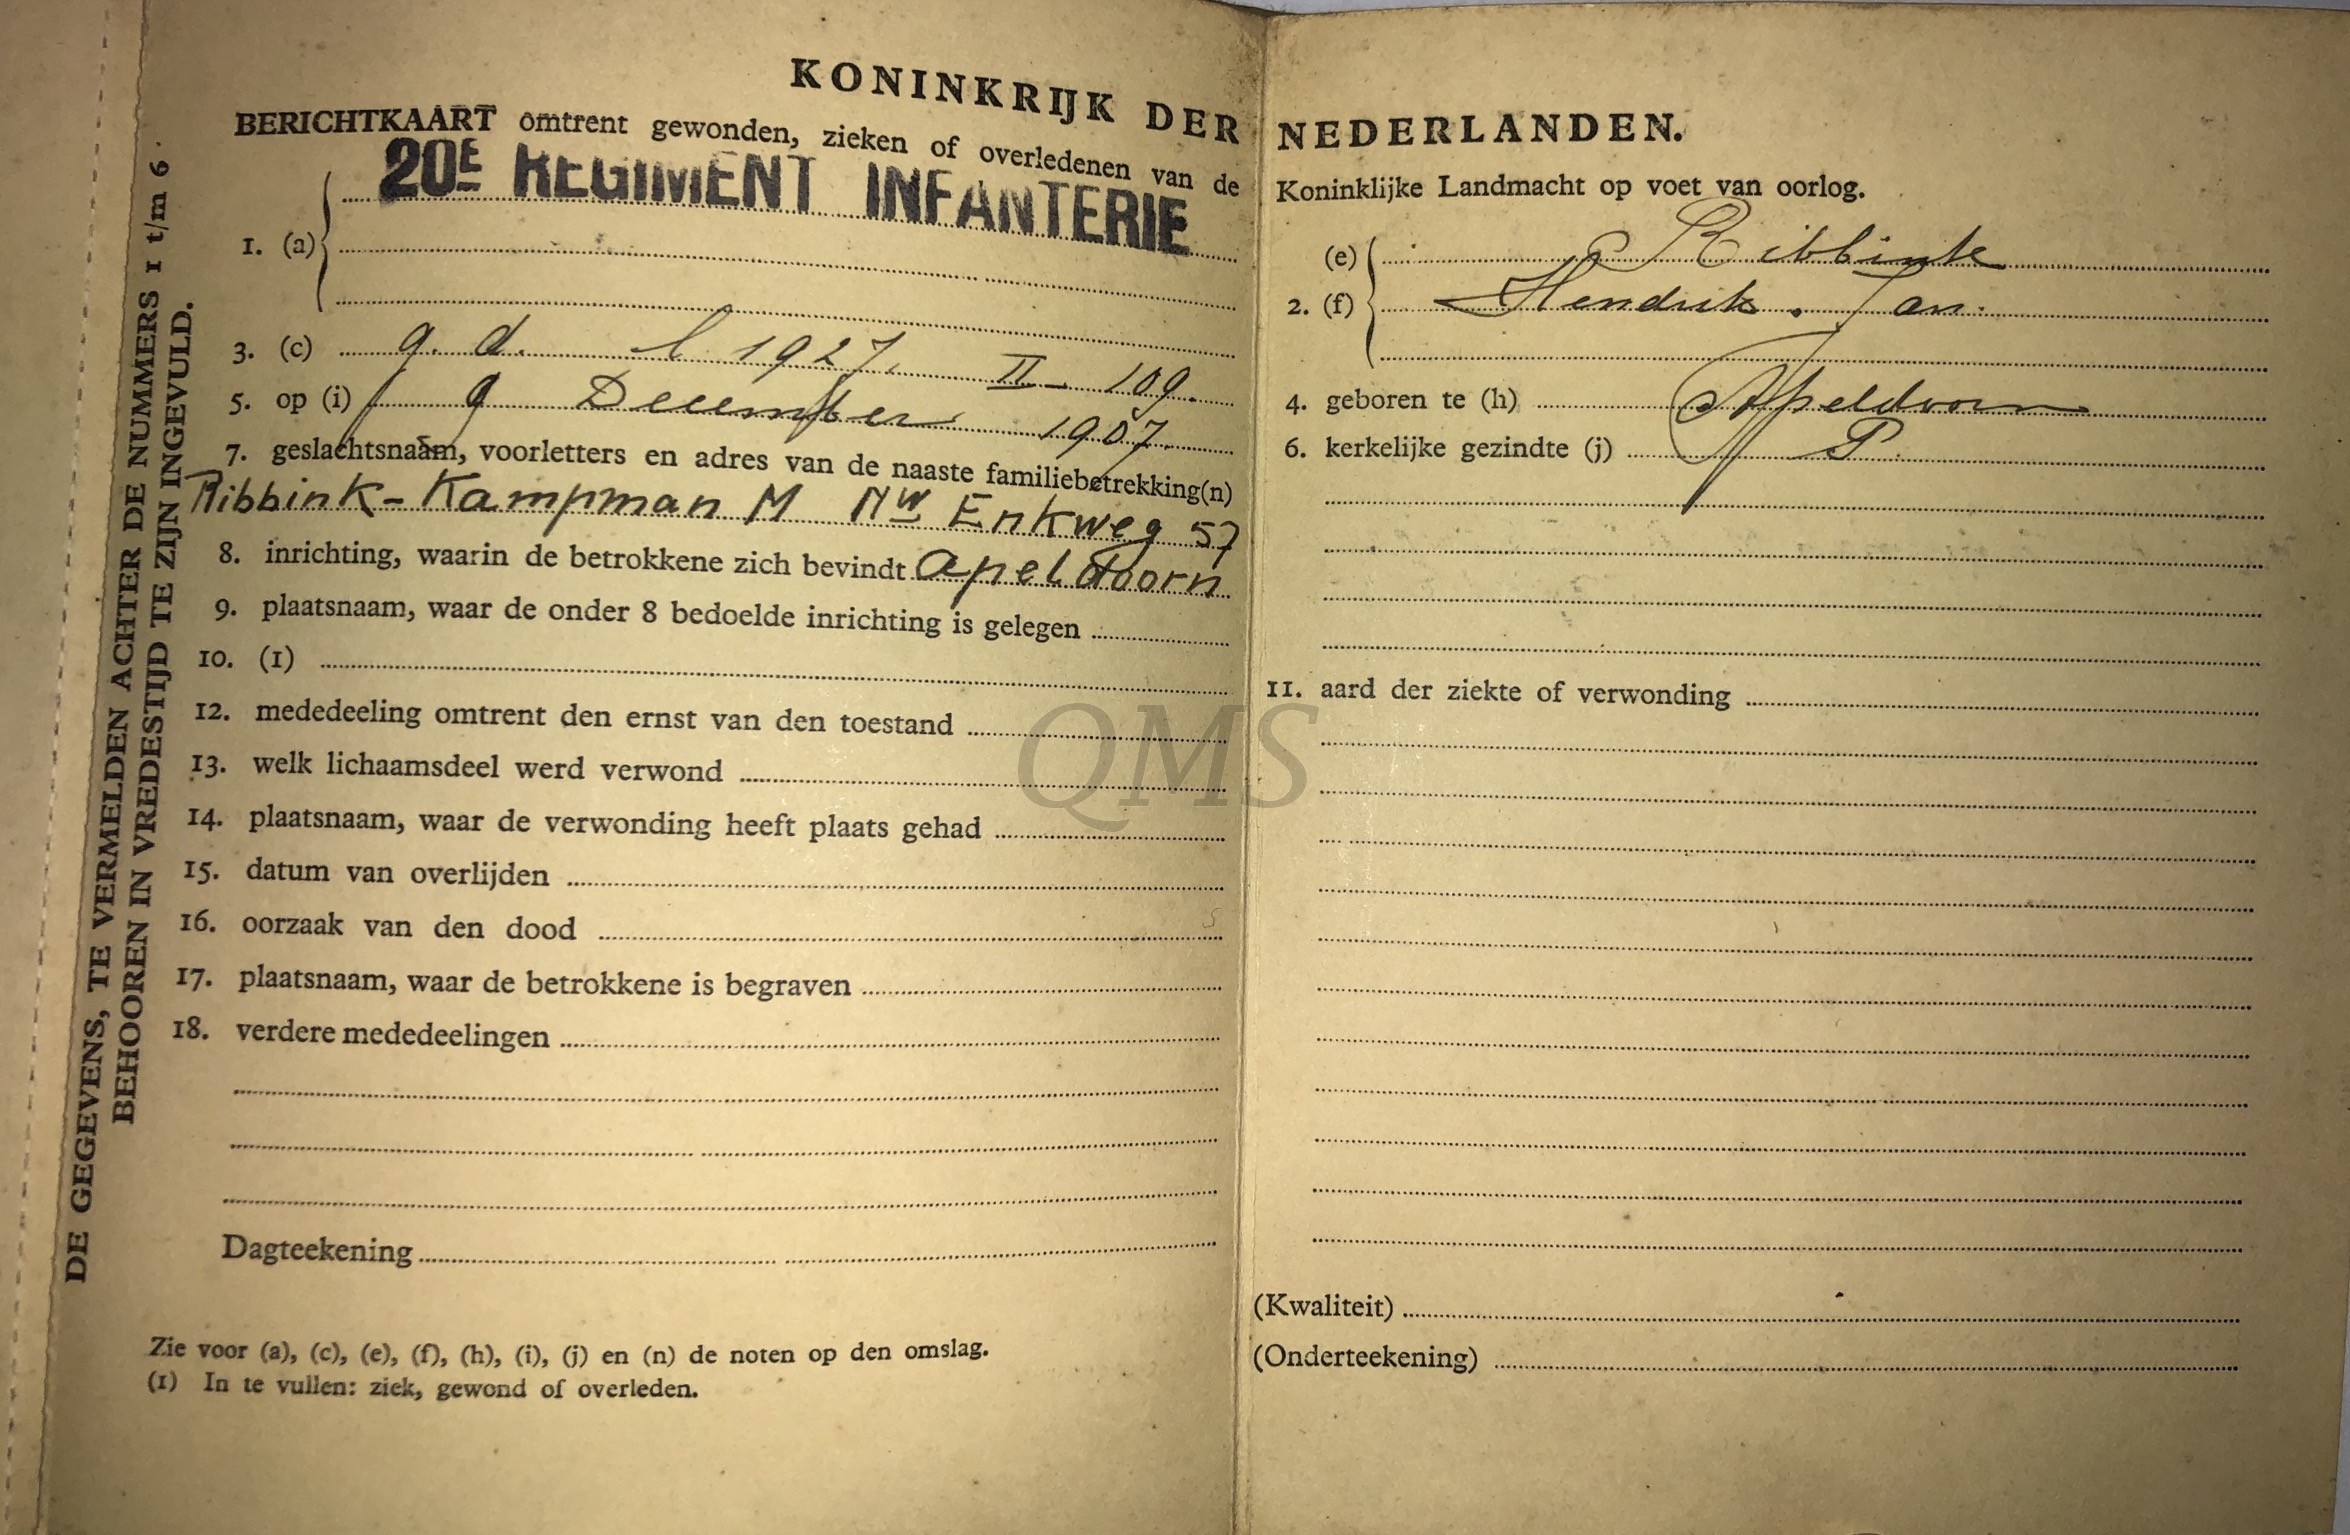 KONINKRIJK DER NEDERLANDEN.
BERICHTKAART omtrent gewonden, zieken of overledenen van de Koninklijke Landmacht op voet van oorlog.
20E REGIMENT INFANTERIE
1. (a)
(e) Ribbink
2. (f) Hendrik. Jan.
3. (c) g. d. l. 1927. II - 109.
4. geboren te (h) Apeldoorn
5. op (i) 9 December 1907.
6. kerkelijke gezindte (j) P.
7. geslachtsnaam, voorletters en adres van de naaste familiebetrekking(n)
Ribbink-Kampman M Nw Enkweg 57
8. inrichting, waarin de betrokkene zich bevindt Apeldoorn
9. plaatsnaam, waar de onder 8 bedoelde inrichting is gelegen
10. (1)
11. aard der ziekte of verwonding
12. mededeeling omtrent den ernst van den toestand
13. welk lichaamsdeel werd verwond
14. plaatsnaam, waar de verwonding heeft plaats gehad
15. datum van overlijden
16. oorzaak van den dood
17. plaatsnaam, waar de betrokkene is begraven
18. verdere mededeelingen
Dagteekening
(Kwaliteit)
(Onderteekening)
Zie voor (a), (c), (e), (f), (h), (i), (j) en (n) de noten op den omslag.
(1) In te vullen: ziek, gewond of overleden.
DE GEGEVENS, TE VERMELDEN ACHTER DE NUMMERS 1 t/m 6
BEHOOREN IN VREDESTIJD TE ZIJN INGEVULD.
QMS